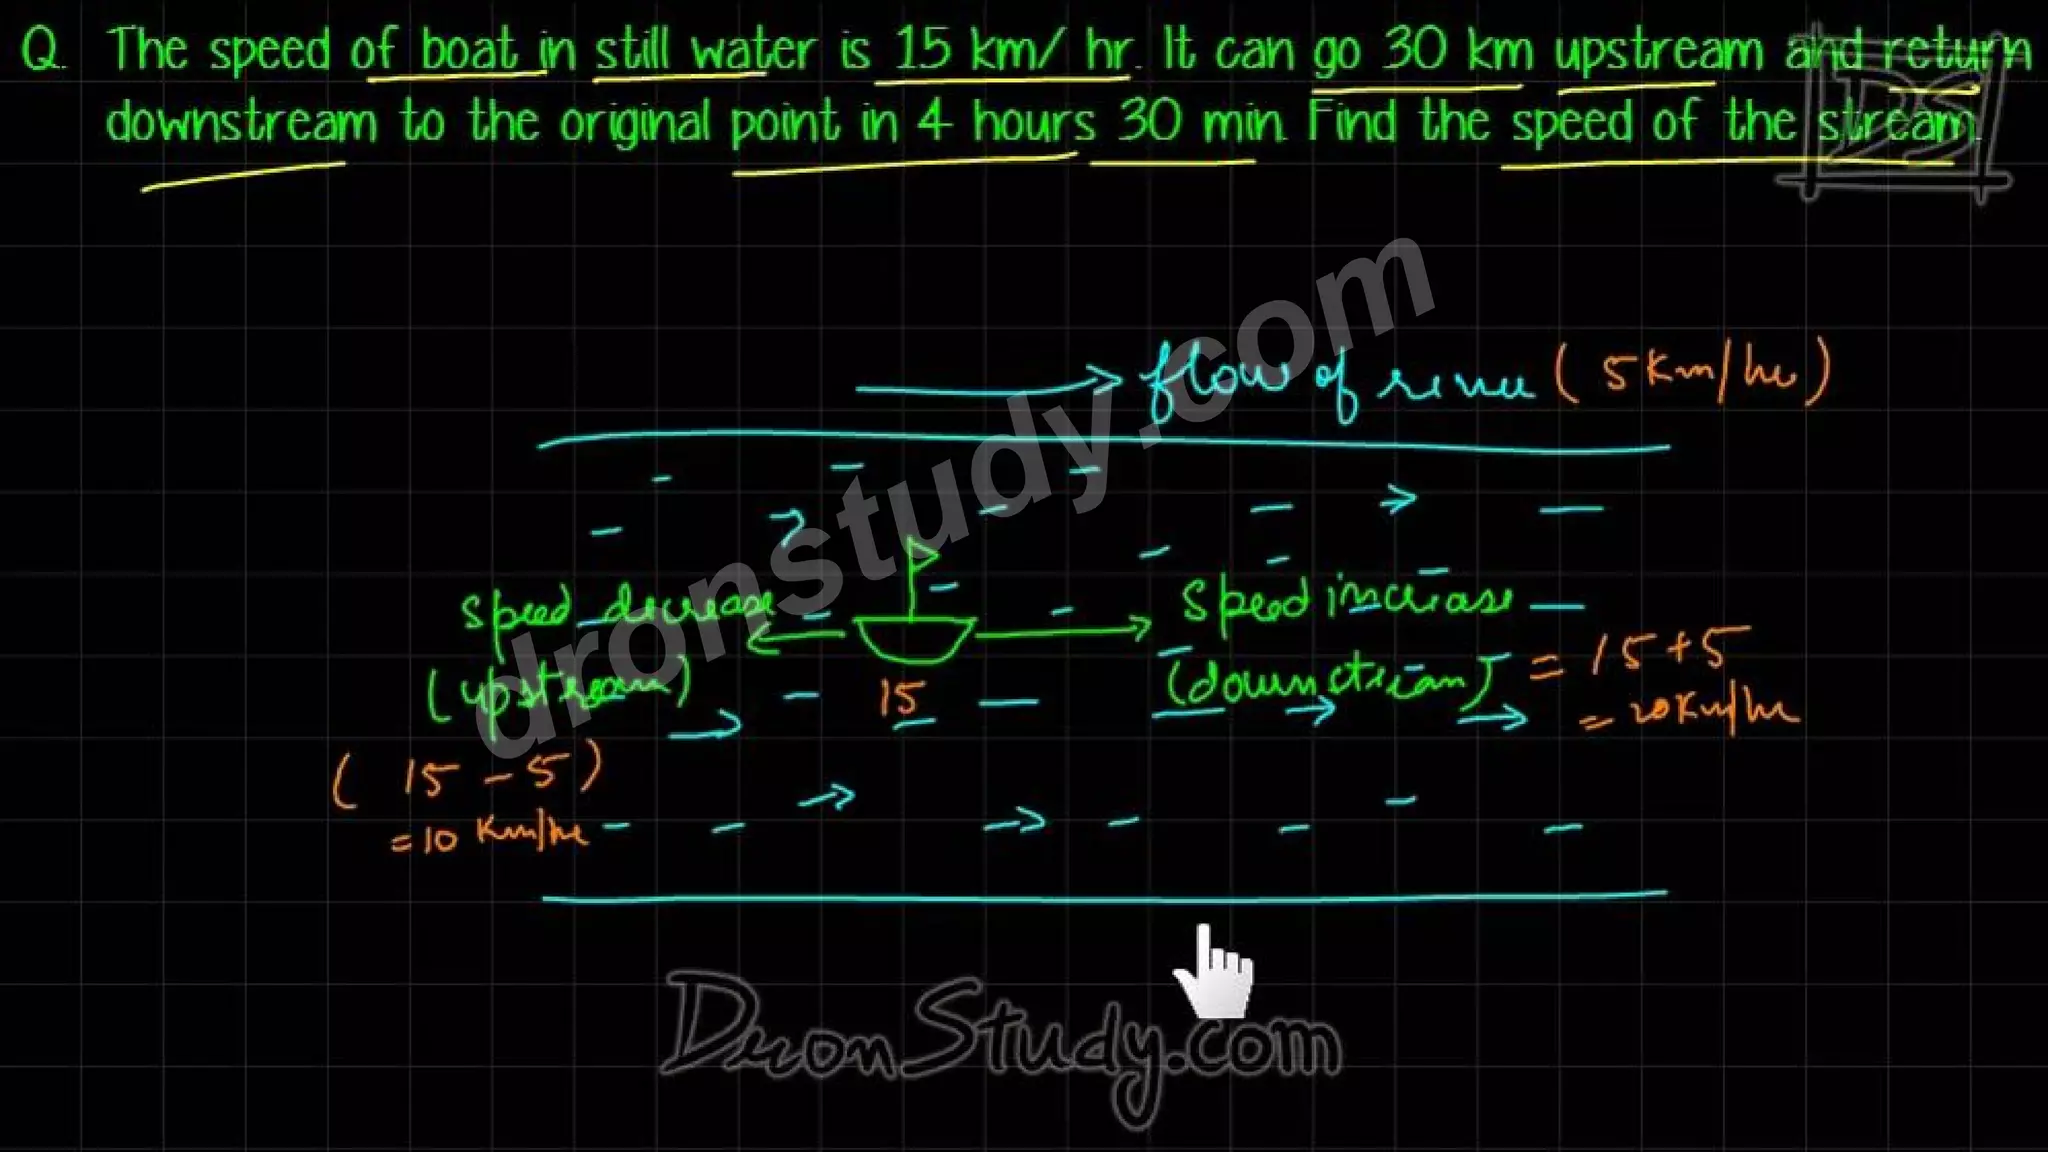 Q. The speed of boat in still water is 15 km/ hr. It can go 30 km upstream and return
downstream to the original point in 4 hours 30 min. Find the speed of the stream.
DS
flow of river (5 Km/hr)
speed decrease
(upstream)
(15 - 5)
= 10 Km/hr
15
speed increase
(downstream)
= 15 + 5
= 20 Km/hr
dronstudy.com
DronStudy.com